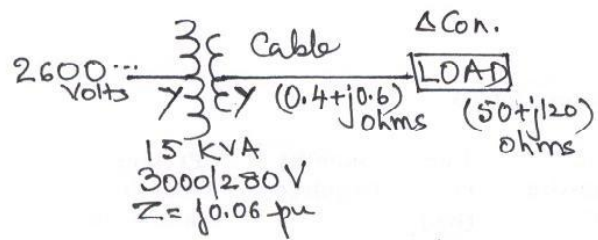 Δ Con.
2600... Volts
Y Y
Cable
LOAD
(0.4+j0.6) ohms
(50+j120) ohms
15 KVA
3000/280 V
Z= j0.06 pu